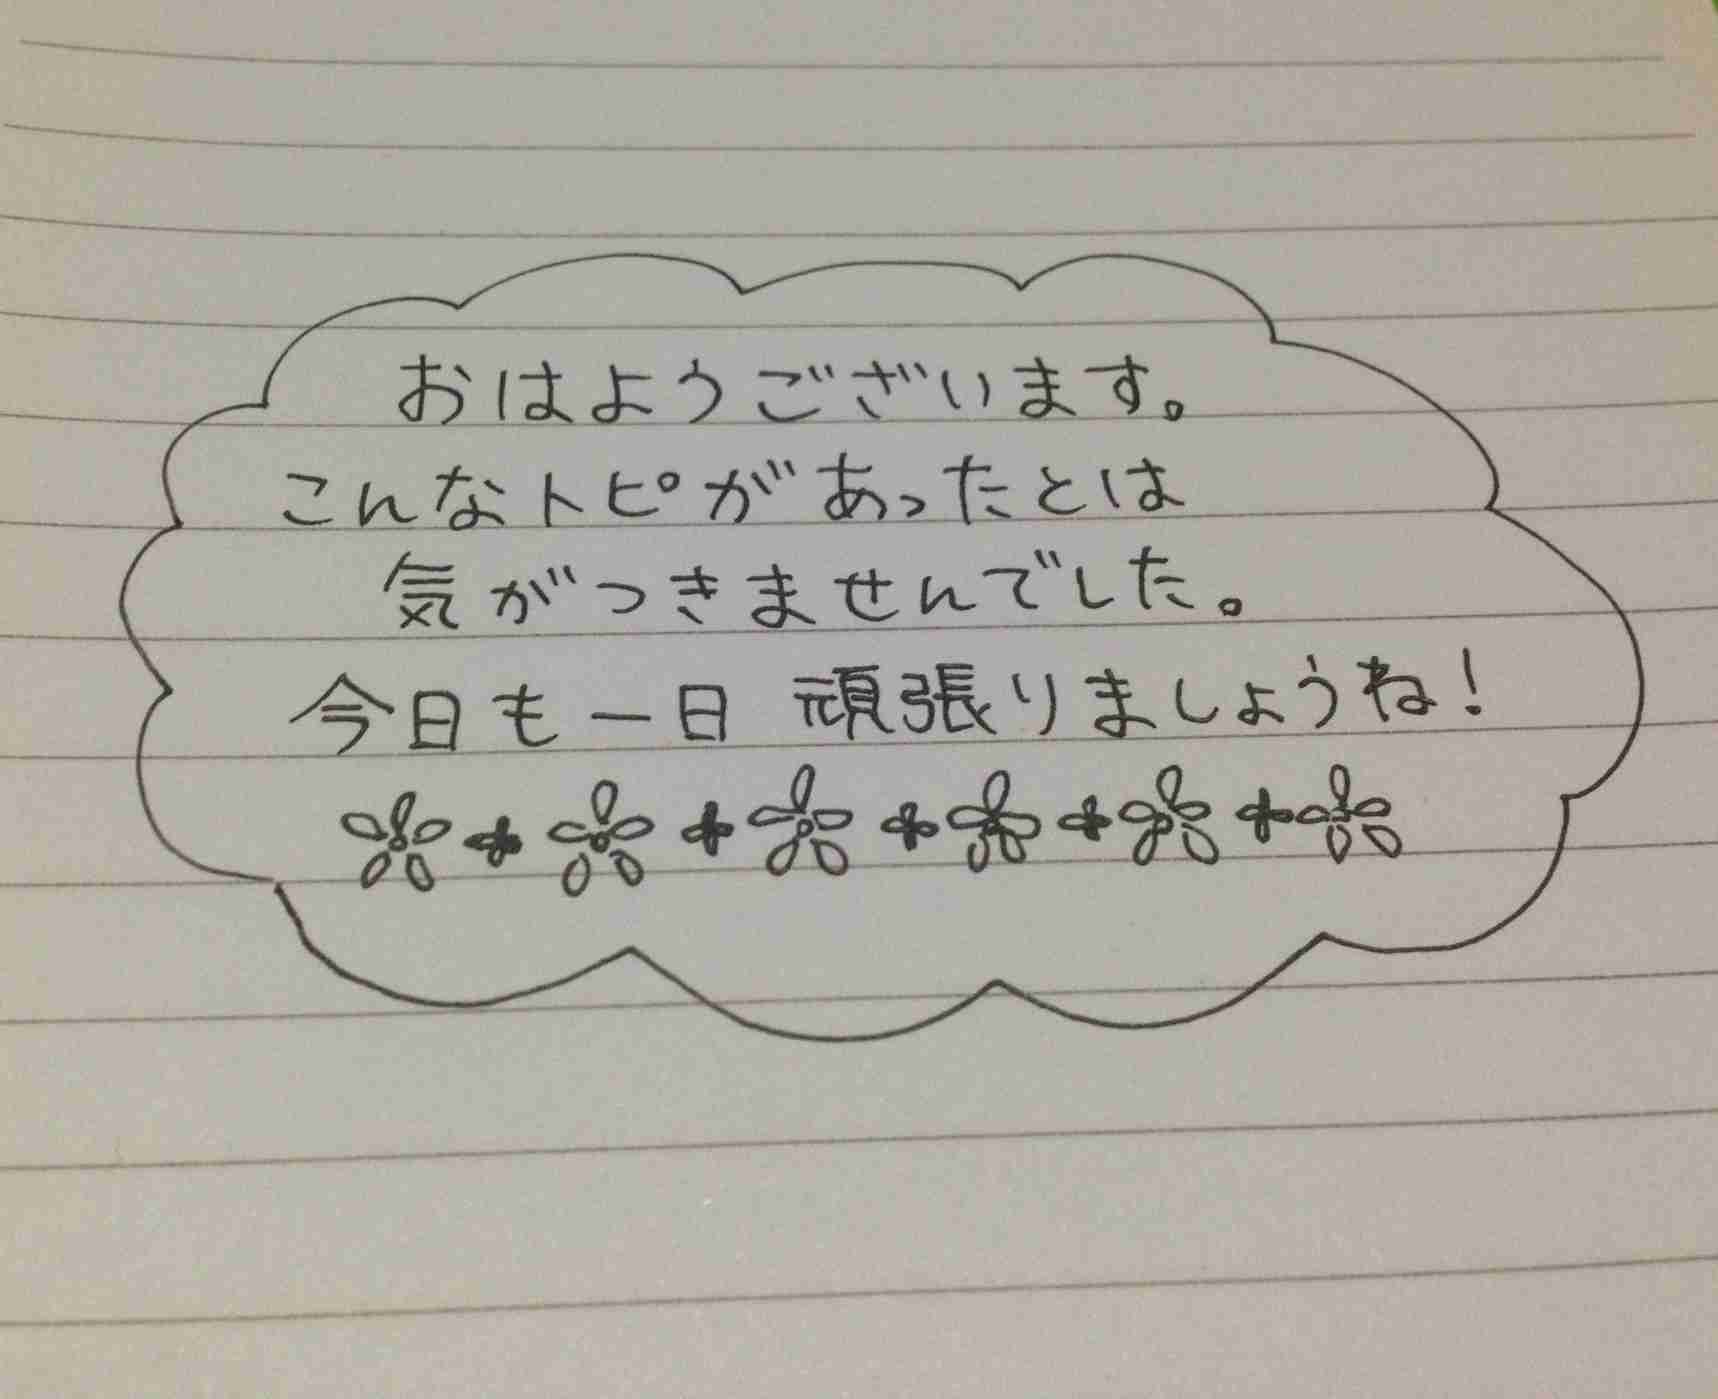 おはようございます。
こんなトピがあったとは
気がつきませんでした。
今日も一日 頑張りましょうね!